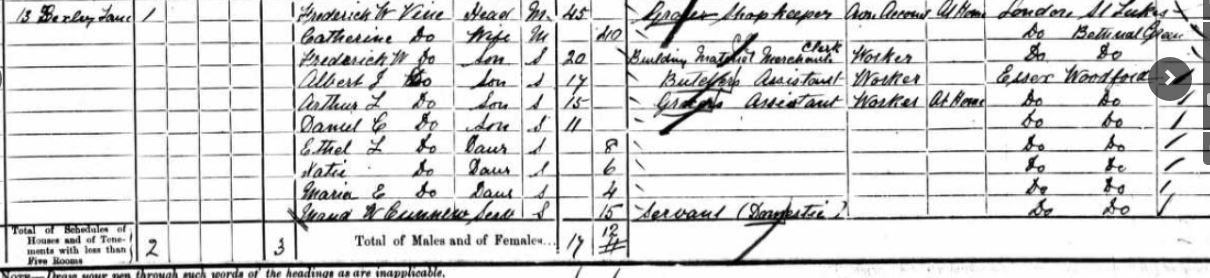 13 Derby Lane 1 Frederick W Vine Head M 45 Grocer Shopkeeper Own Account At Home London St Lukes
Catherine Do Wife M 40 Do Bethnal Green
Frederick W Do Son S 20 Building Material Merchants Clerk Worker Do Do
Albert J Do Son S 17 Butchers Assistant Worker Essex Woodford 1
Arthur L Do Son S 15 Grocers Assistant Worker At Home Do Do 1
Daniel C Do Son S 11 Do Do 1
Ethel L Do Daur S 8 Do Do 1
Katie Do Daur S 6 Do Do 1
Maria E Do Daur S 4 Do Do 1
Maud W Servt S 15 Servant (Domestic) Do Do 1
Total of Schedules of
Houses and of Tene-
ments with less than
Five Rooms
2 3 Total of Males and of Females... 17 12
NOTE—Draw your pen through such words of the headings as are inapplicable.